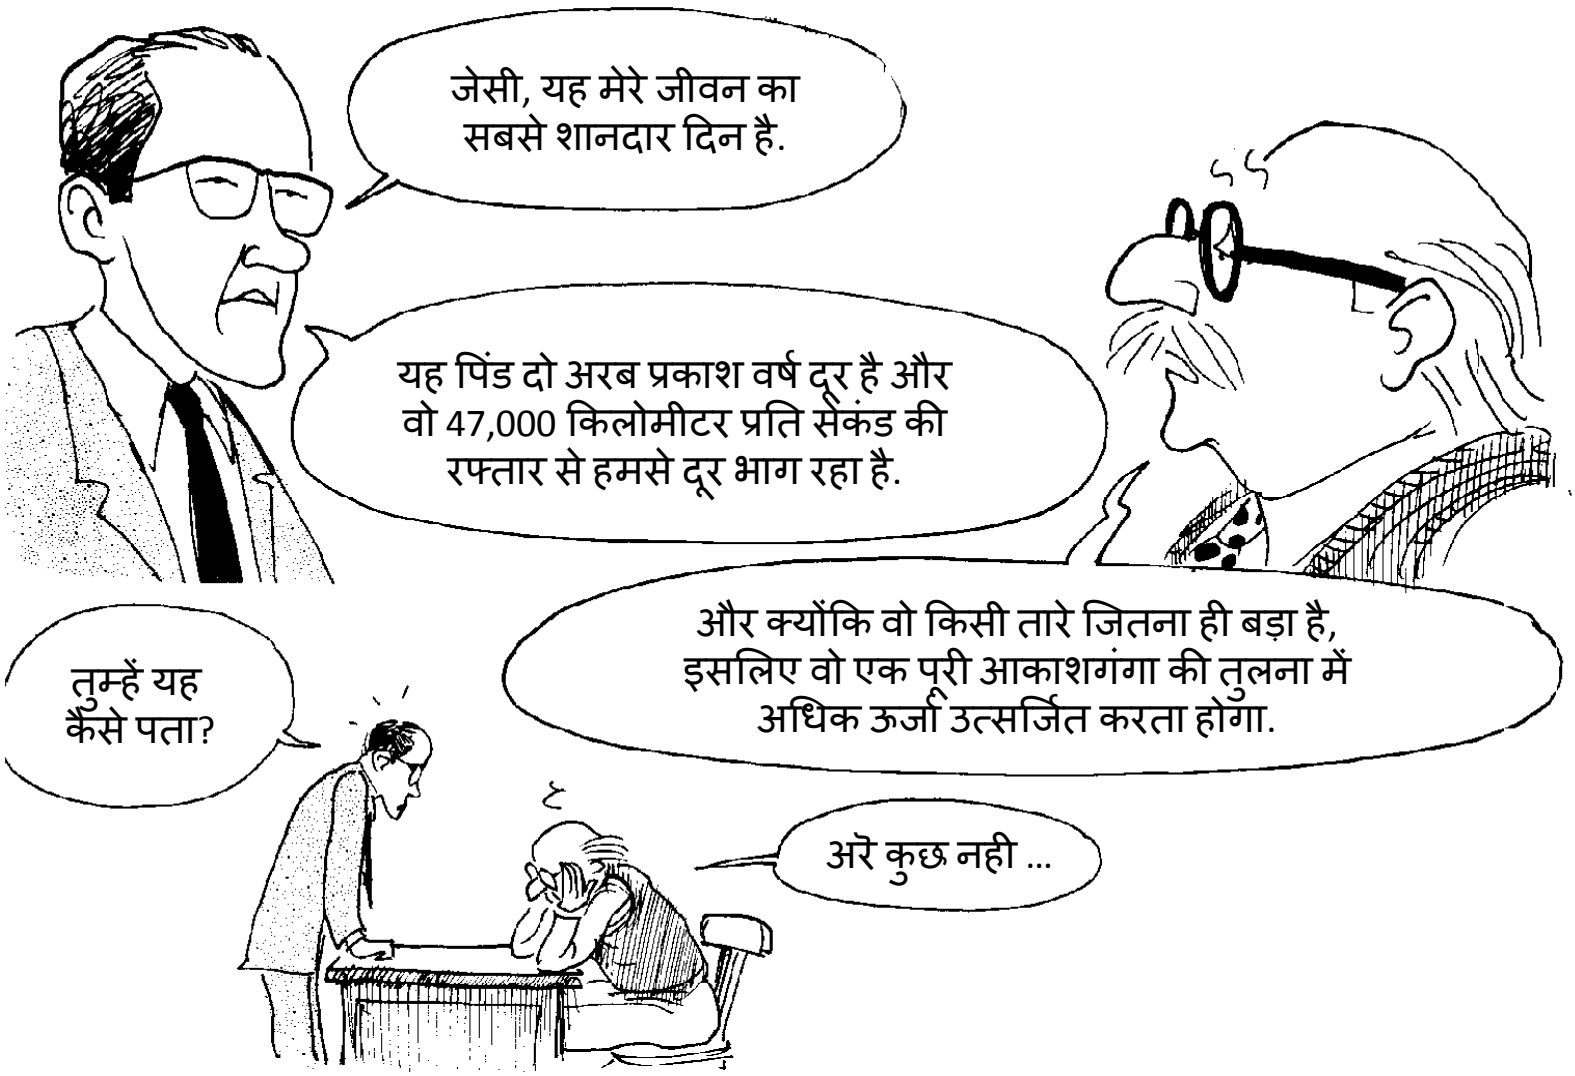 जेसी, यह मेरे जीवन का
सबसे शानदार दिन है.
यह पिंड दो अरब प्रकाश वर्ष दूर है और
वो 47,000 किलोमीटर प्रति सेकंड की
रफ्तार से हमसे दूर भाग रहा है.
और क्योंकि वो किसी तारे जितना ही बड़ा है,
इसलिए वो एक पूरी आकाशगंगा की तुलना में
अधिक ऊर्जा उत्सर्जित करता होगा.
तुम्हें यह
कैसे पता?
अरॆ कुछ नही ...